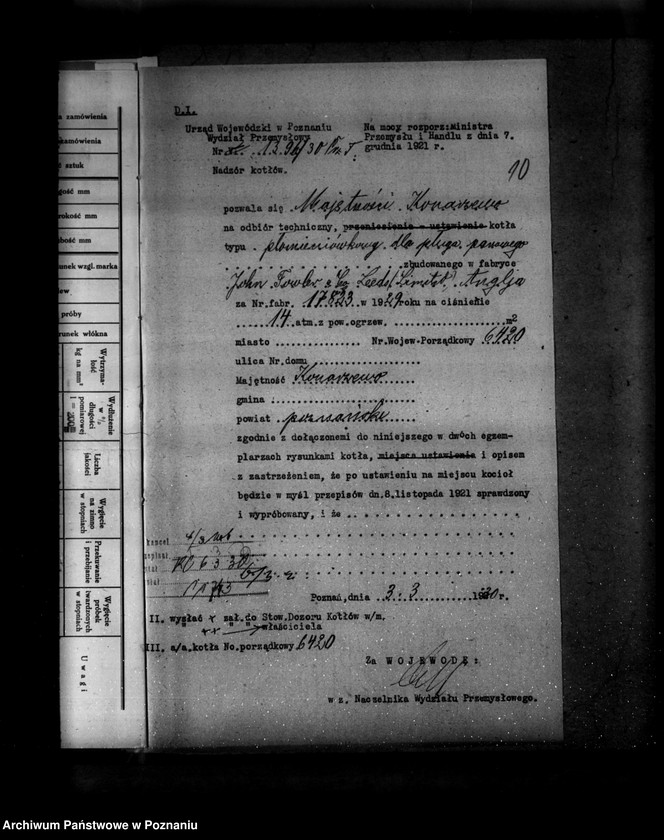 D.I.
Urząd Wojewódzki w Poznaniu
Wydział Przemysłowy
Nr. /30
Nadzór kotłów.
Na mocy rozporz:Ministra
Przemysłu i Handlu z dnia 7.
grudnia 1921 r.
10
pozwala się . Majętności . Konarzewo
na odbiór techniczny, przeniesienie - ustawienie kotła
typu . płomieniówkowy. dla pługa. parowego
zbudowanego w fabryce
John Fowler & Leeds Limited Anglja
za Nr.fabr. 17823 w 1929 roku na ciśnienie
14 atm.z pow.ogrzew. m2
miasto Nr.Wojew-Porządkowy 6420
ulica Nr.domu
Majętność Konarzewo
gmina :
powiat poznański
zgodnie z dołączonemi do niniejszego w dwóch egzem-
plarzach rysunkami kotła, miejsca ustawienia i opisem
z zastrzeżeniem, że po ustawieniu na miejscu kocioł
będzie w myśl przepisów dn.8.listopada 1921 sprawdzony
i wypróbowany, i że
6 3 30
Poznań,dnia 3.3 1930 r.
II. wysłać zał.do Stow.Dozoru Kotłów w/m.
" " właściciela
III. a/a.kotła No.porządkowy 6420
Za WOJEWODĘ:
w z. Naczelnika Wydziału Przemysłowego.
a zamówienia
zamówienia
ść sztuk
gość mm
rokość mm
ubość mm
unek wzgl. marka
iew
próby
runek włókna
Wytrzyma-
łość
kg na mm²
Wydłużenie
w %
długości
pomiarowej
Liczba
jakości
Wygięcie
na zimno
w stopniach
Przekuwanie
i przebijanie
Wygięcie
próbek
twardzonych
w stopniach
Uwagi
Archiwum Państwowe w Poznaniu